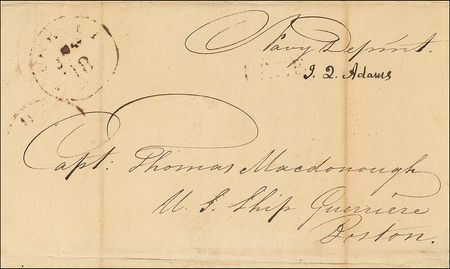 Navy Depmt.
J. Q. Adams
18
Capt: Thomas Macdonough
U. S. Ship Guerrière
Boston.